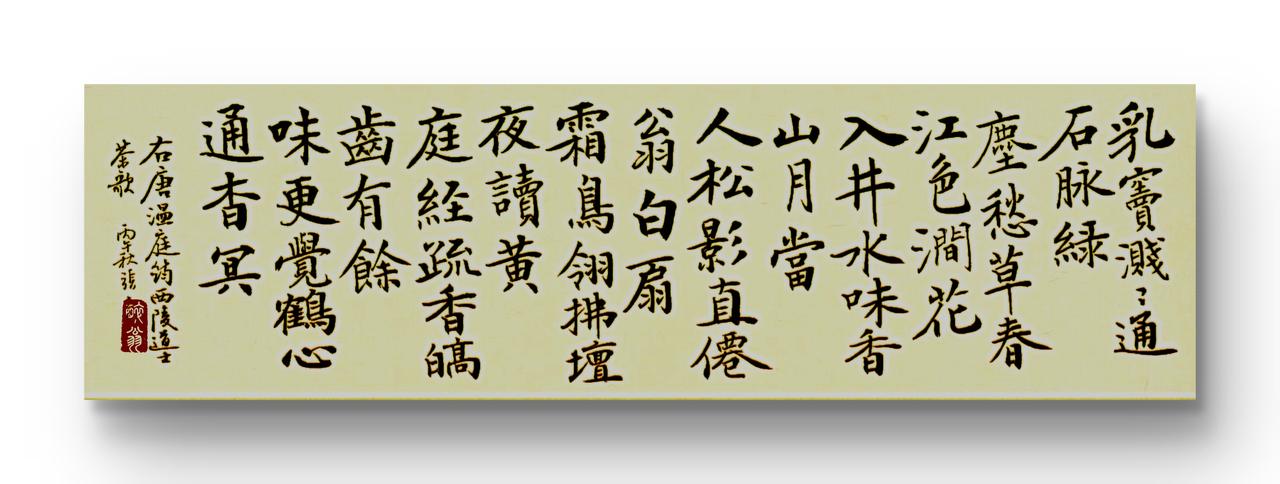 乳竇濺〻通
石脉緑
塵愁草春
江色澗花
入井水味香
山月當
人松影直僊
翁白扇
霜鳥翎拂壇
夜讀黄
庭経疏香皜
齒有餘
味更覺鶴心
通杳冥
右唐温庭筠西陵道士
茶歌 丙午秋張